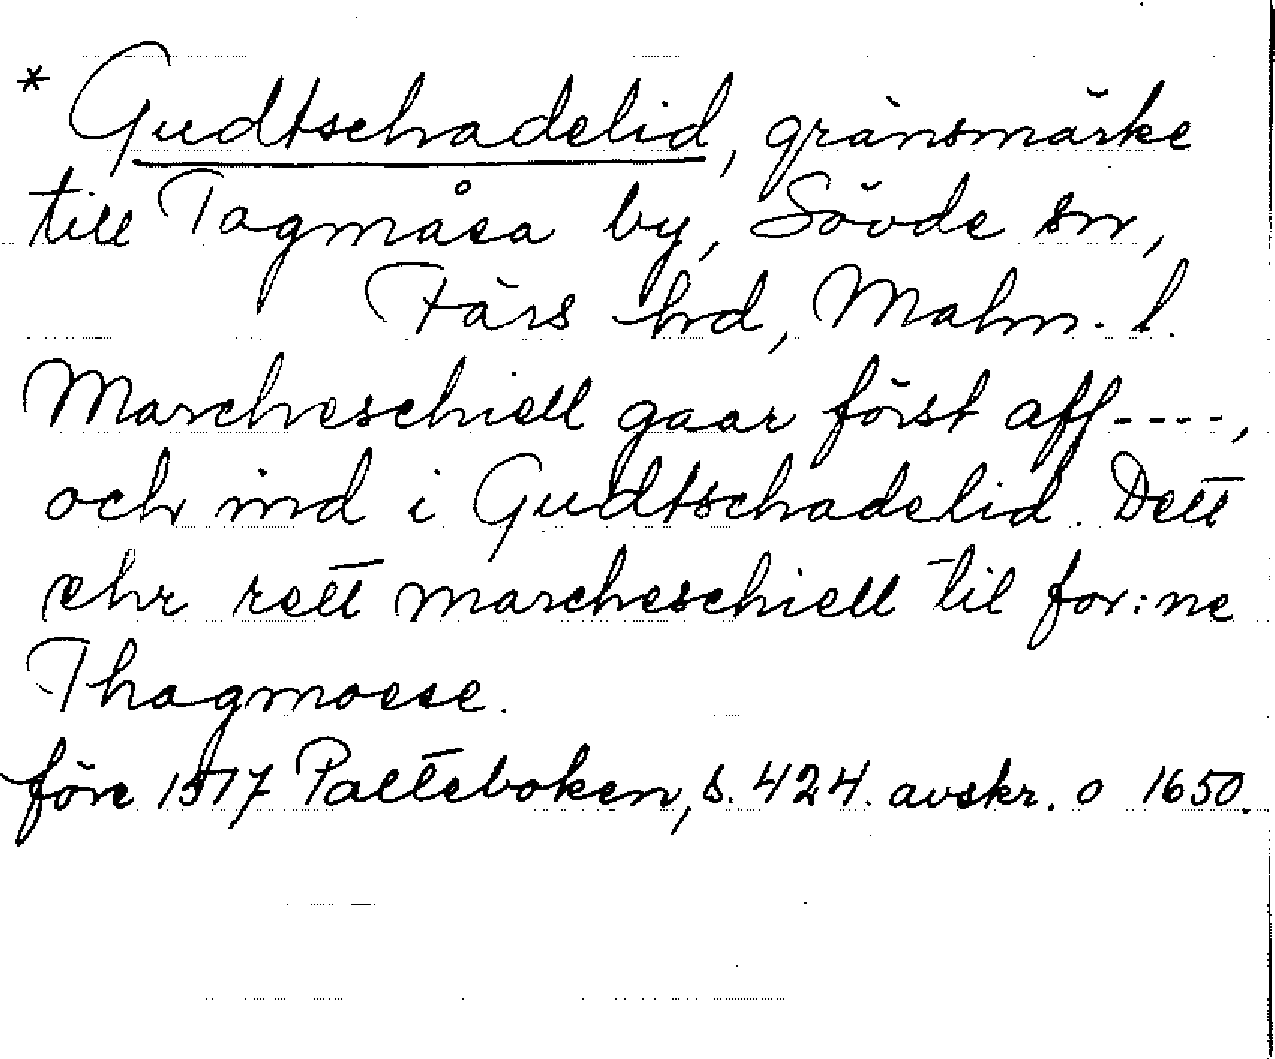 * Gudtschadelid, gränsmärke
till Tagmåsa by, Sövde sn,
Färs hd, Malm. l.
Marcheschiell gaar först aff----,
och ind i Gudtschadelid. Dett
ehr rett marcheschiell til for:ne
Thagmoese.
före 1517 Palteboken, s. 424. avskr. o 1650.